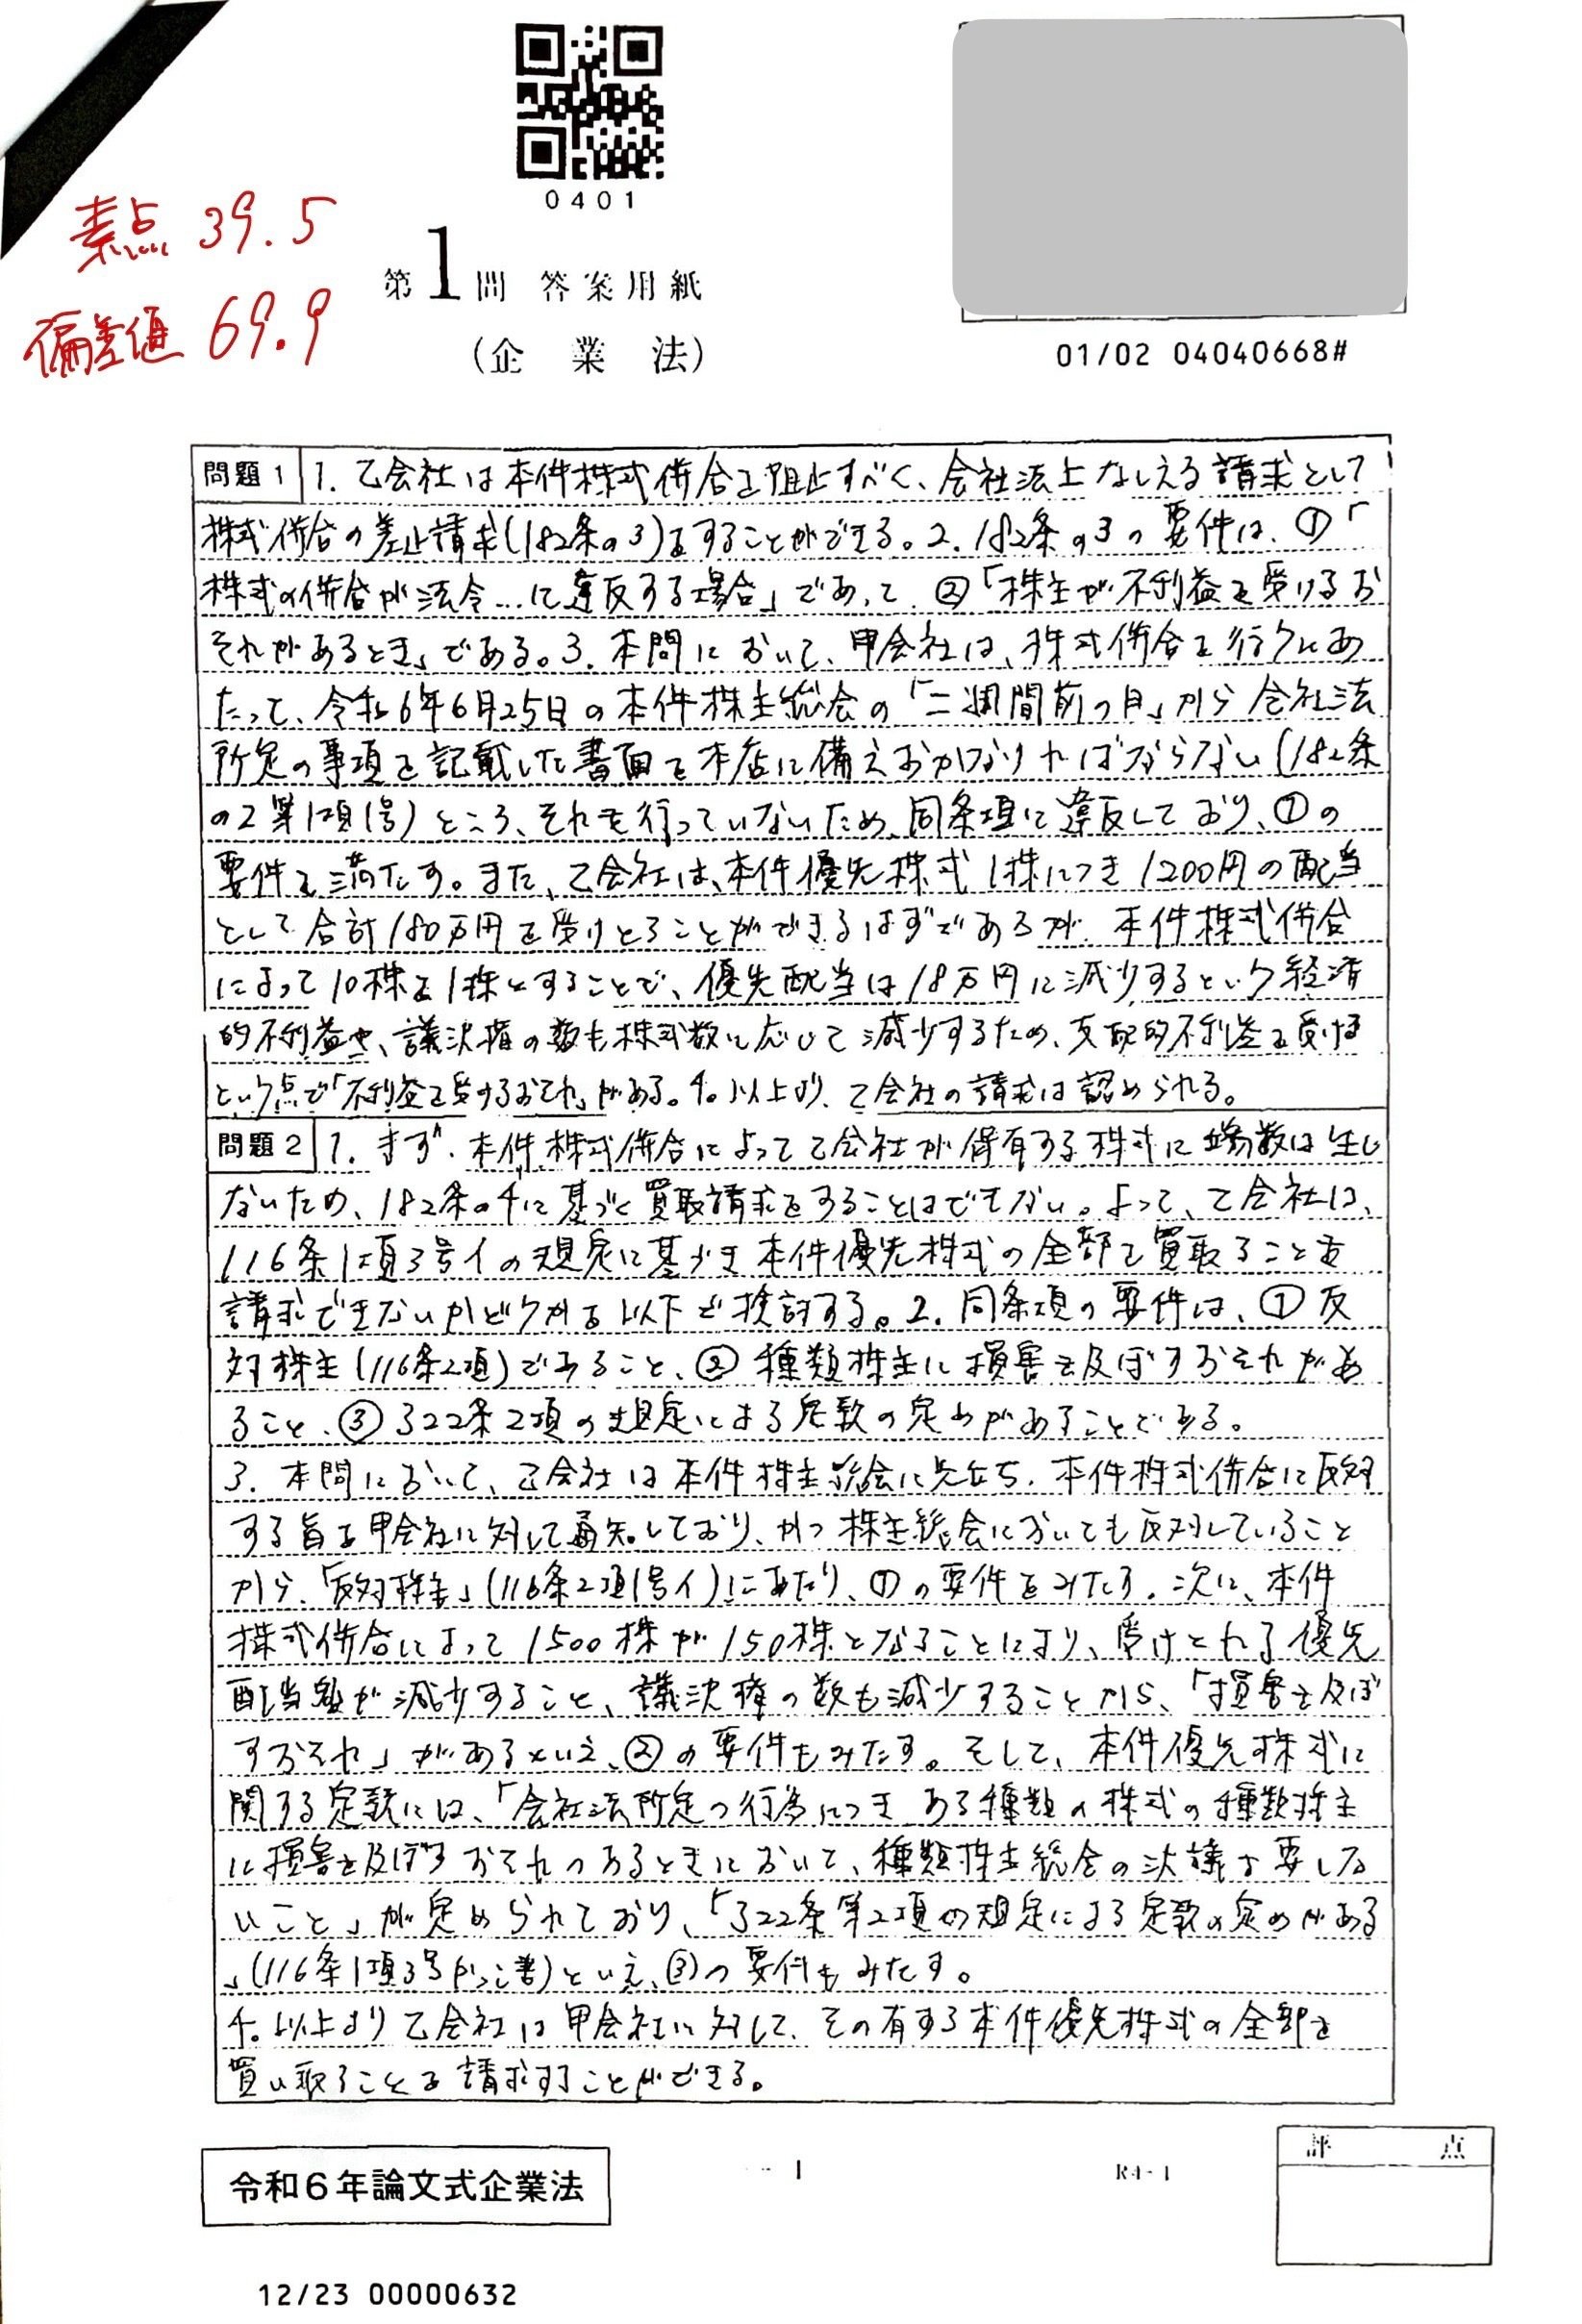 0401
素点 39.5
偏差値 69.9
第1問 答案用紙
(企業法)
01/02 04040668#
問題1 1. 乙会社は本件株式併合を阻止すべく、会社法上なしえる請求として
株式併合の差止請求(182条の3)をすることができる。2. 182条の3の要件は、①「
株式の併合が法令…に違反する場合」であって、②「株主が不利益を受けるお
それがあるとき」である。3. 本問において、甲会社は、株式併合を行うにあ
たって、令和6年6月25日の本件株主総会の「二週間前の日」から会社法
所定の事項を記載した書面を本店に備えおかなければならない(182条
の2第1項1号)ところ、それを行っていないため、同条項に違反しており、①の
要件を満たす。また、乙会社は、本件優先株式1株につき1200円の配当
として合計180万円を受けとることができるはずであるが、本件株式併合
によって10株を1株とすることで、優先配当は18万円に減少するという経済
的不利益や、議決権の数も株式数に応じて減少するため、支配的不利益を受ける
という点で「不利益を受けるおそれ」がある。4. 以上より、乙会社の請求は認められる。
問題2 1. まず、本件株式併合によって乙会社が保有する株式に端数は生じ
ないため、182条の4に基づく買取請求をすることはできない。よって、乙会社は、
116条1項3号イの規定に基づき本件優先株式の全部を買取ることを
請求できないかどうかを以下で検討する。2. 同条項の要件は、①反
対株主(116条2項)であること、②種類株主に損害を及ぼすおそれがあ
ること、③322条2項の規定による定款の定めがあることである。
3. 本問において、乙会社は本件株主総会に先立ち、本件株式併合に反対
する旨を甲会社に対して通知しており、かつ株主総会においても反対していること
から、「反対株主」(116条2項1号イ)にあたり、①の要件をみたす。次に、本件
株式併合によって1500株が150株となることにより、受けとれる優先
配当額が減少すること、議決権の数も減少することから、「損害を及ぼ
すおそれ」があるといえ、②の要件もみたす。そして、本件優先株式に
関する定款には、「会社法所定の行為につき ある種類の株式の種類株主
に損害を及ぼすおそれのあるときにおいて、種類株主総会の決議を要しな
いこと」が定められており、「322条第2項の規定による定款の定めがある
」(116条1項3号かっこ書)といえ、③の要件もみたす。
4. 以上より乙会社は甲会社に対して、その有する本件優先株式の全部を
買い取ることを請求することができる。
令和6年論文式企業法
1
R4-1
評点
12/23 00000632